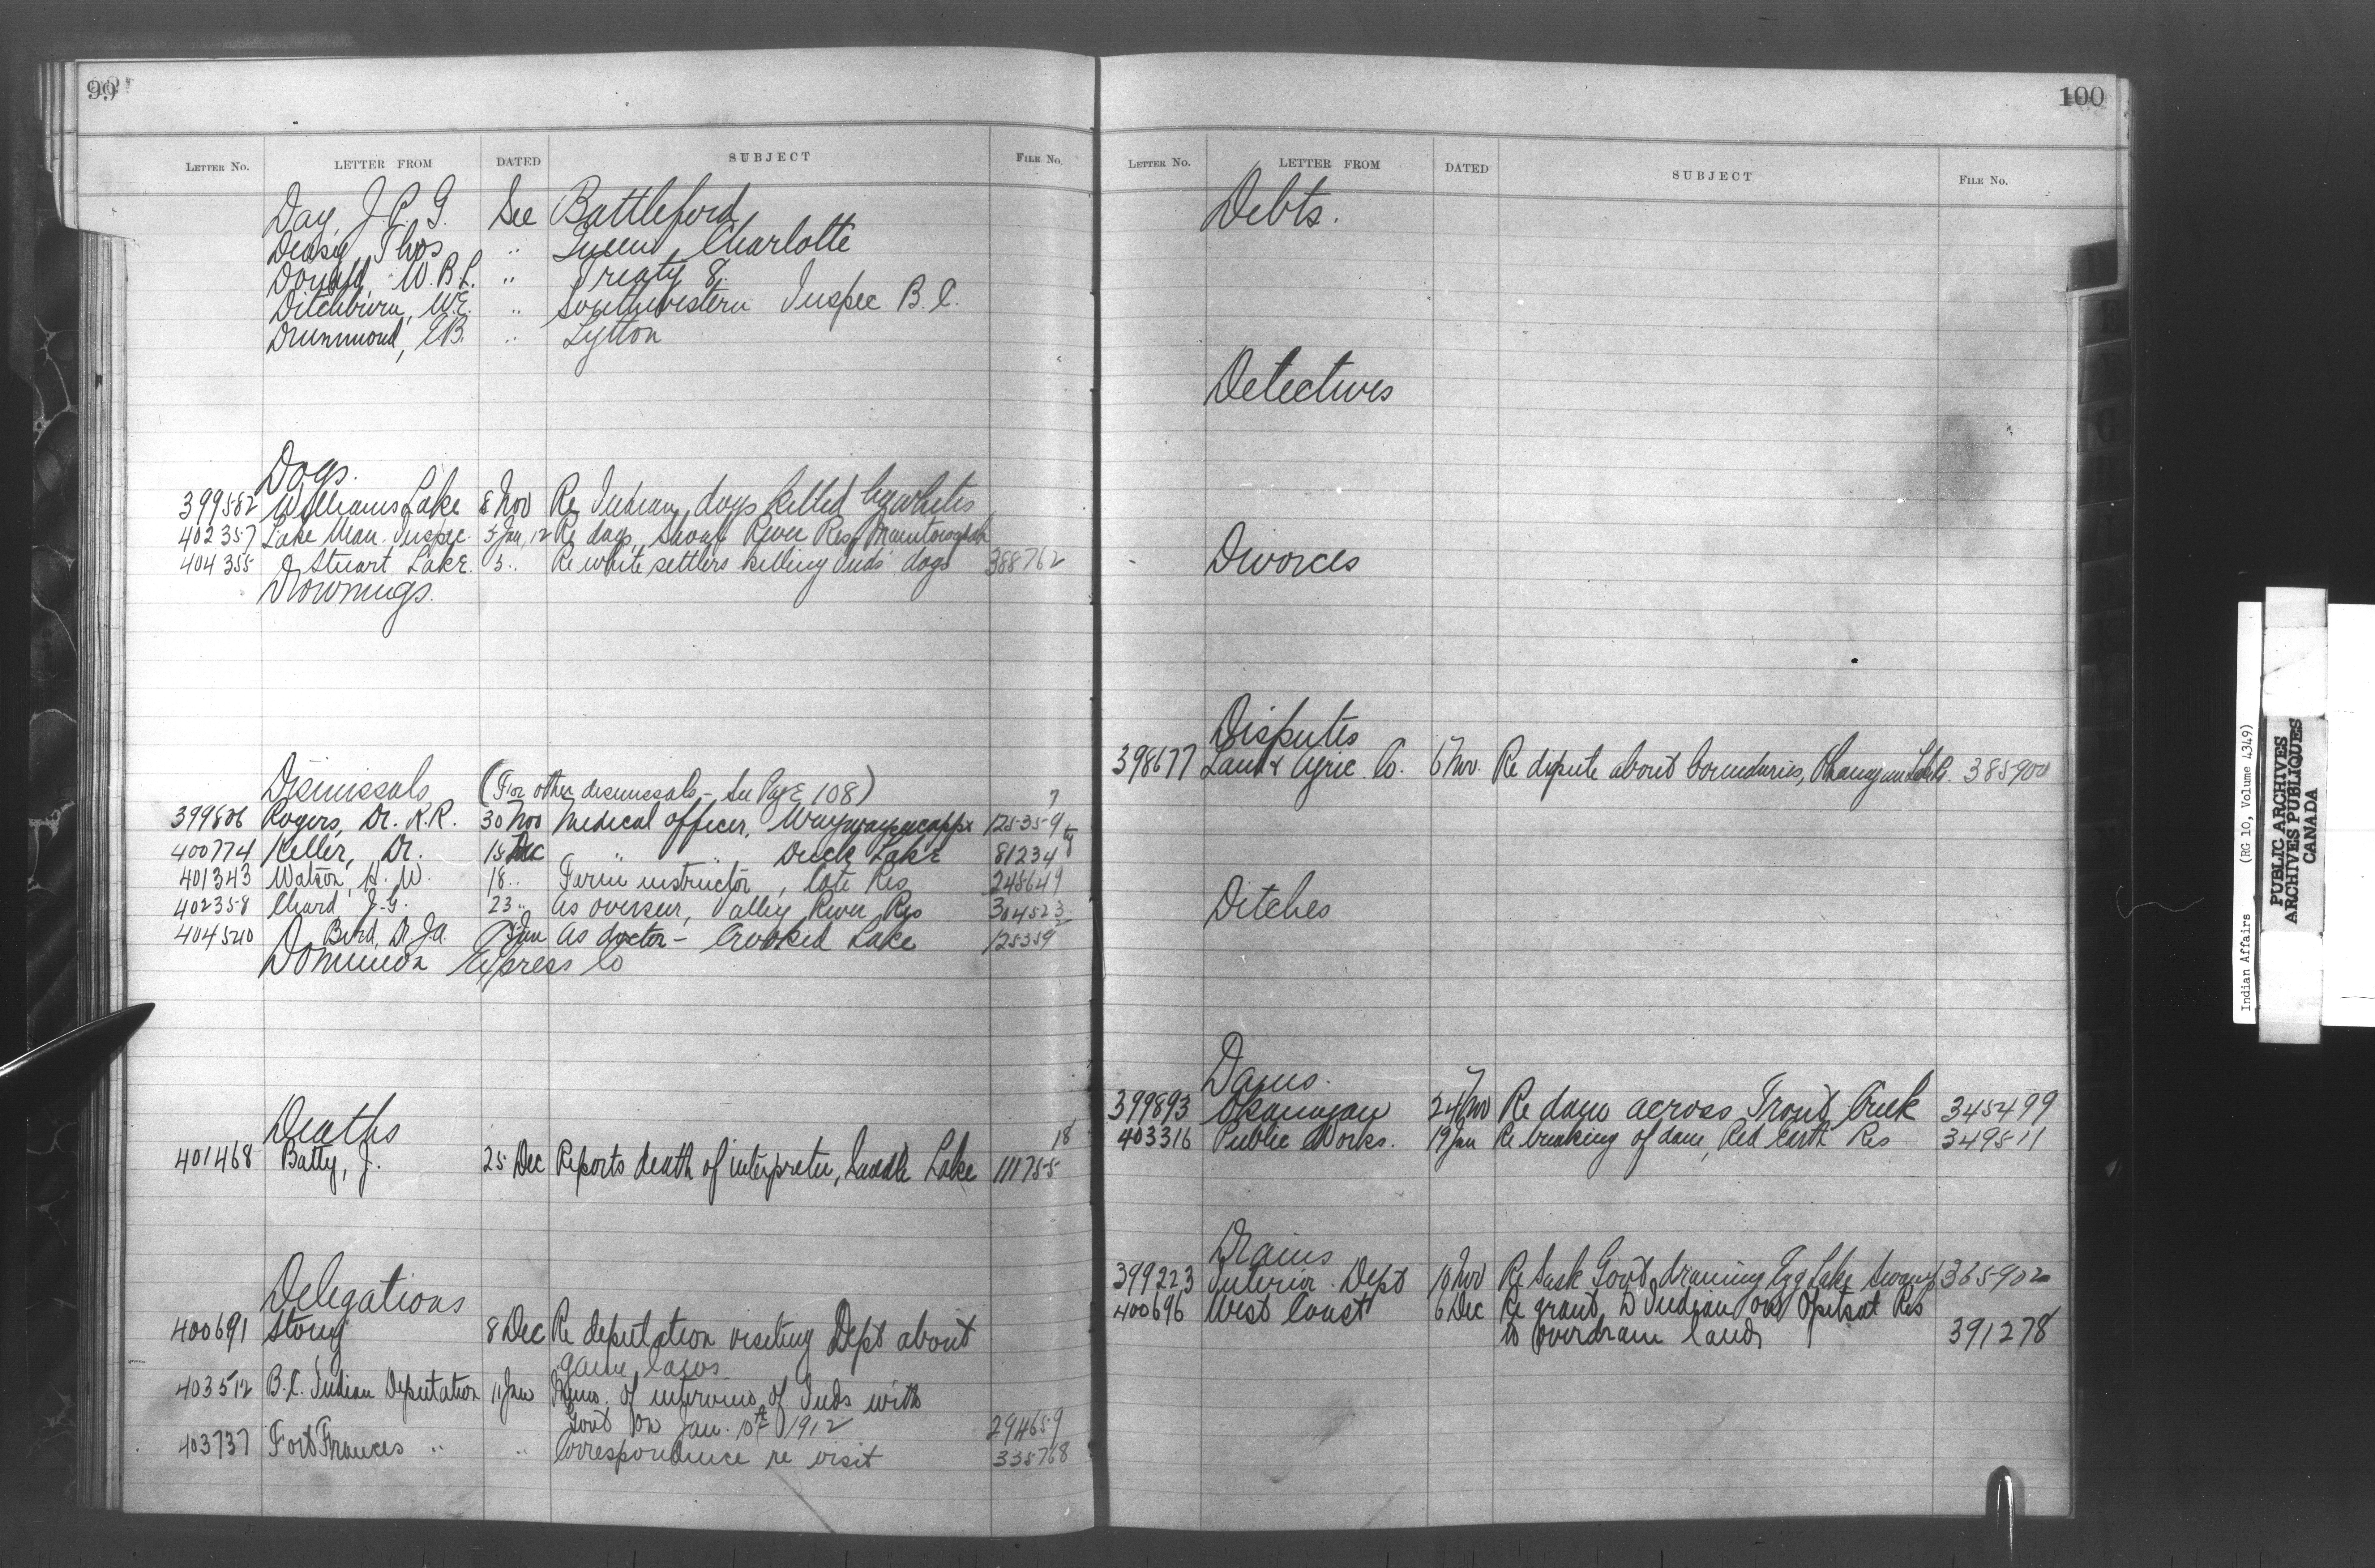 99
LETTER No. LETTER FROM DATED SUBJECT FILE No.
Day, J. P. G. See Battleford
Deasy, Thos " Queen Charlotte
Donald, W. B. L. " Treaty 8
Ditchburn, W.E. " Southwestern Inspec B. C.
Drummond, E.B. " Lytton
Dogs.
399582 Williams Lake 8 Nov Re Indian dogs killed by whites
402357 Lake Man. Inspec. 5 Jan, 12 Re dogs, Shoal River Res,
404355 Stuart Lake 5 " Re white settlers killing Inds' dogs 388762
Drownings.
Dismissals (For other dismissals - See Page 108)
399806 Rogers, Dr. R.R. 30 Nov Medical officer, Waywayseecappo 125359 7
400774 Keller, Dr. 15 Dec " " Duck Lake 81234
401343 Watson, H. W. 18 " Farm instructor, Cote Res 248649
402358 Chard, J. G. 23 " As overseer, Valley River Res 304523
404540 Bird, Dr J.A. Jan As doctor - Crooked Lake 125359 2
Dominion Express Co
Deaths
401468 Batty, J. 25 Dec Reports death of interpreter, Saddle Lake 111755 18
Delegations
400691 Stony 8 Dec Re deputation visiting Dept about
game laws
403512 B.C. Indian Deputation 11 Jan Memo. of interview of Inds with
Govt on Jan. 10th 1912 294659
403737 Fort Frances " " Correspondence re visit 335768
100
LETTER No. LETTER FROM DATED SUBJECT FILE No.
Debts.
Detectives
Divorces
Disputes
398677 Land & Agric. Co. 6 Nov. Re dispute about boundaries, Okanagan 385900
Ditches
Dams.
399893 Okanagan 24 Nov Re dam across Trout Creek 345499
403316 Public Works. 19 Jan Re breaking of dam, Red Earth Res 349511
Drains
399223 Interior Dept 10 Nov Re Sask Govt draining Egg Lake Swamp 365902
400696 West Coast 6 Dec Re grant to Indian on Opitsat Res
to lands 391278
Indian Affairs (RG 10, Volume 4349)
PUBLIC ARCHIVES
ARCHIVES PUBLIQUES
CANADA